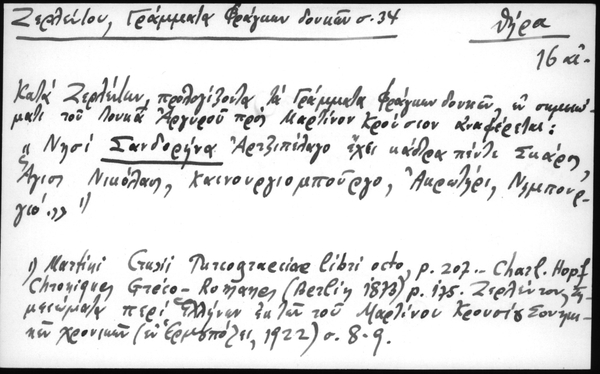 Ζερλέντου, Γράμματα Φράγκων δουκῶν σ. 34
Θήρα
16 αἰ.
Κατά Ζερλέντην, προλογίζοντα τά Γράμματα Φράγκων δουκῶν, ἐν σημειώ-
ματι τοῦ Λουκᾶ Ἀργυροῦ πρός Μαρτῖνον Κρούσιον ἀναφέρεται:
"Νησί Σανδορήνα Ἀρτζιπέλαγο ἔχει κάστρα πέντε Σκάρος,
Ἅγιος Νικόλαος, Καινουργιομπούργο, Ἀκρωτήρι, Νημπούρ-
γιό." 1)
1) Martini Crusii Turcograeciae libri octo, p. 207.- Charl. Hopf
Chroniques Gréco-Romanes (Berlin 1873) p. 175. Ζερλέντου, Ση-
μειώματα περί Ἑλλήνων ἐκ τῶν τοῦ Μαρτίνου Κρουσίου Σουηβι-
κῶν χρονικῶν (ἐν Ἑρμουπόλει, 1922) σ. 8-9.